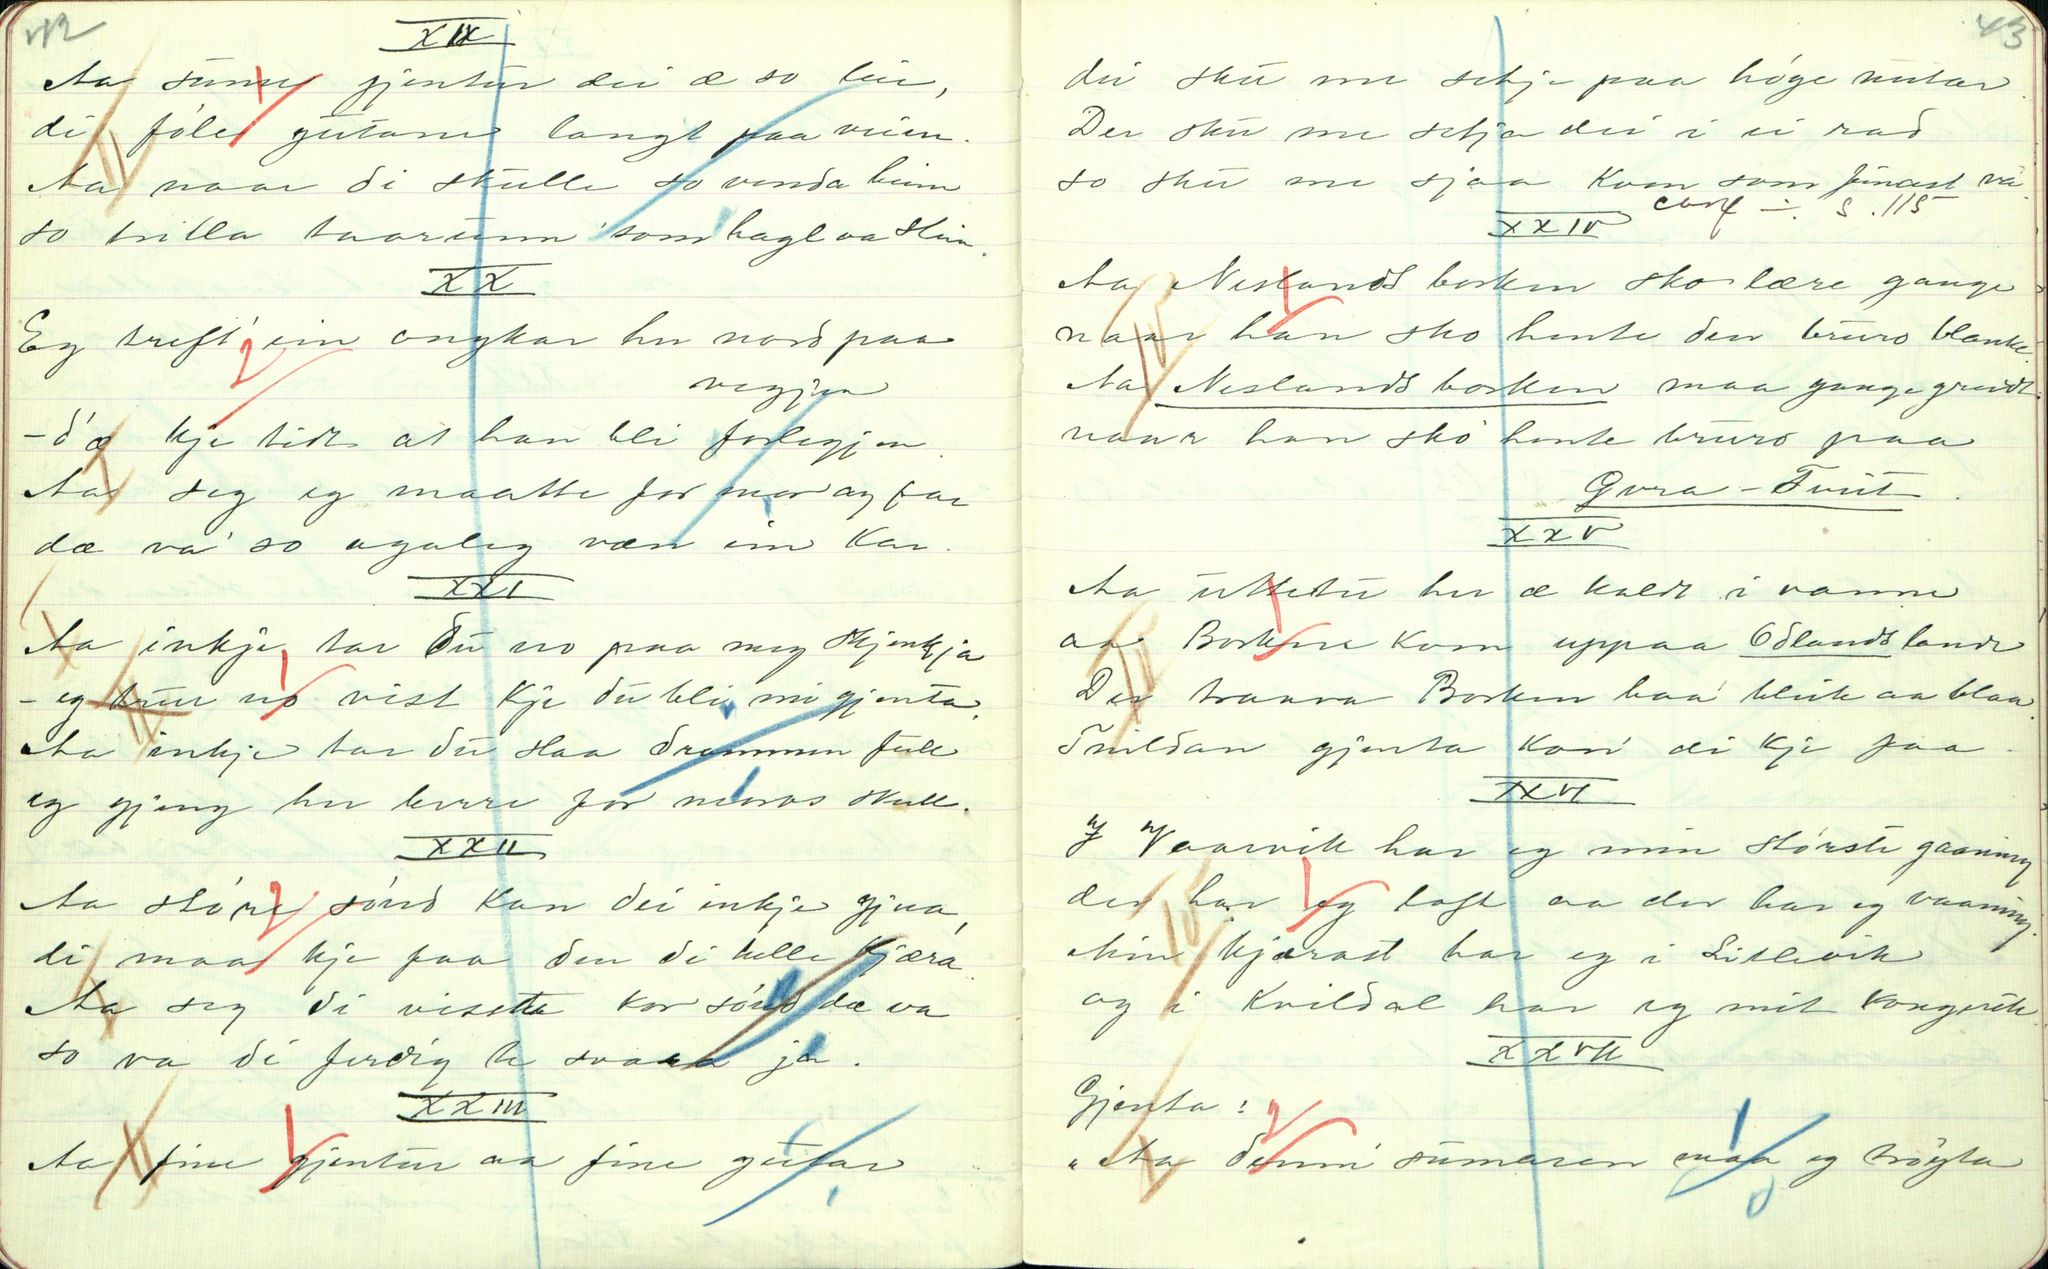 42
XIX
Aa sume gjentur dei æ so lei,
di føler gutane langt paa veien.
Aa naar di skulle so venda heim
so trilla taarunn som hagl aa stein.
XX
Eg treft' ein ongkar her nord paa
vegjen
- d'æ kje tidt at han bli forlegjen.
Aa seg eg maatte for mor og far
dæ va' so ugaleg væn ein kar.
XXI
Aa inkje tar du no paa meg skjenkja
- eg trur no vist kje du bli mi gjenta.
Aa inkje tar du slaa drammen full
eg gjeng her berre for moros skull.
XXII
Aa støre sønd kan dei inkje gjera,
di maa kje faa den di helle kjæra
Aa seg di visste kor sønd dæ va
so va di ferdig te svara ja.
XXIII
Aa fine gjentur aa fine gutar
43
dei sku me setja paa høge nutar.
Der sku me setja dei i ei rad
so sku me sjaa kven som finast va.
conf ÷. S. 115
XXIV
Aa Neslands borken sko lære gange
naar han sko hente den bruro blanke.
Aa Neslands borken maa gange greidt
naar han sko hente bruro paa
Gvra-Tveit.
XXV
Aa uttetu her æ kaldt i vanne
aa Borken kom uppaa Ødlandslande
Der traava Borken baa' bleik aa blaa.
Tvildan gjenta kan di kje faa.
XXVI
I Vaarvik har eg min største gaaning
der har eg loft aa der har eg vaaning.
Min kjærast har eg i Litlevik
og i Kvildal har eg mit kongerik.
XXVII
Gjenta:
"Aa denni sumaren maa eg trøyta